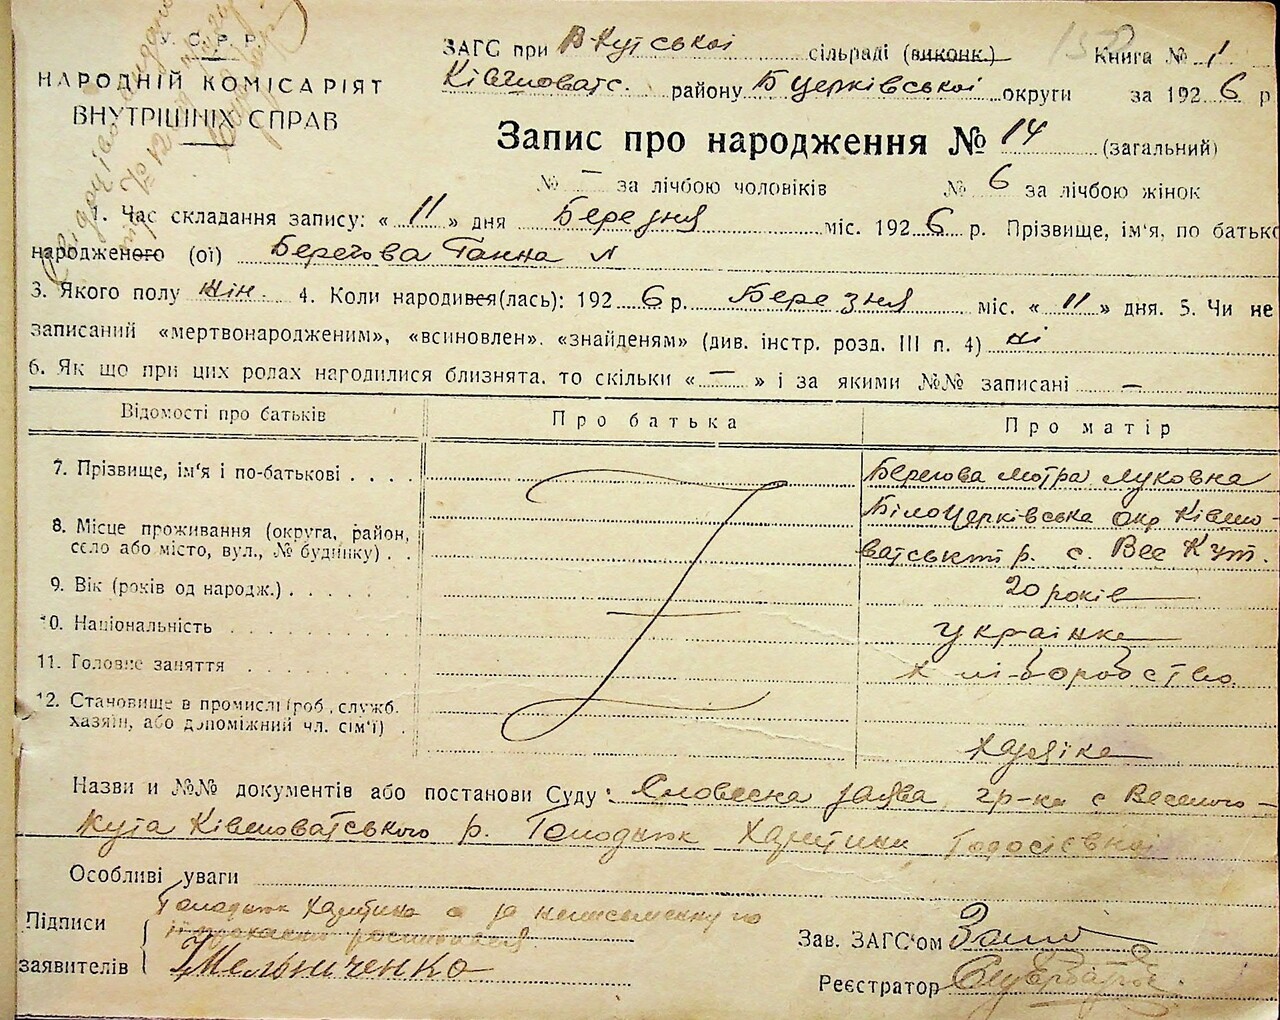 У.С.Р.Р.
НАРОДНІЙ КОМІСАРІЯТ
ВНУТРІШНІХ СПРАВ
ЗАГС при В-Кутської сільраді (виконк.) Книга № 1
150
Ківшоватс. району Б Церківської округи за 1926 р
Запис про народження № 14 (загальний)
№ — за лічбою чоловіків № 6 за лічбою жінок
1. Час складання запису: « 11 » дня Березня міс. 1926 р. Прізвище, ім'я, по батько
народженого (ої) Берегова Ганна Л
3. Якого полу жін. 4. Коли народився(лась): 1926 р. Березня міс. « 11 » дня. 5. Чи не
записаний «мертвонародженим», «всиновлен». «знайденям» (див. інстр. розд. III п. 4) ні
6. Як що при цих родах нагодилися близнята. то скільки « — » і за якими №№ записані —
Відомості про батьків Про батька Про матір
7. Прізвище, ім'я і по-батькові . . . . Берегова Мотра Луковна
8. Місце проживання (округа, район, Білоцерківська окр Ківшо-
село або місто, вул., № будинку) . . ватський р. с. Вес Кут.
9. Вік (років од народж.) . . . . . 20 років
10. Національність . . . . . . . . українка
11. Головне заняття . . . . . . . хліборобство
12. Становище в промислі (роб., служб.
хазяїн, або допоміжний чл. сім'ї) . хазяїка
Назви и №№ документів або постанови Суду: Словесна заява гр-ки с Веселого-
Кута Ківшоватського р. Голоднюк Харитини Тодосієвної
Особливі уваги
Підписи Голоднюк Харитина а за неписьменну по
її проханні росписався
заявителів Мельниченко
Зав. ЗАГС'ом
Реєстратор